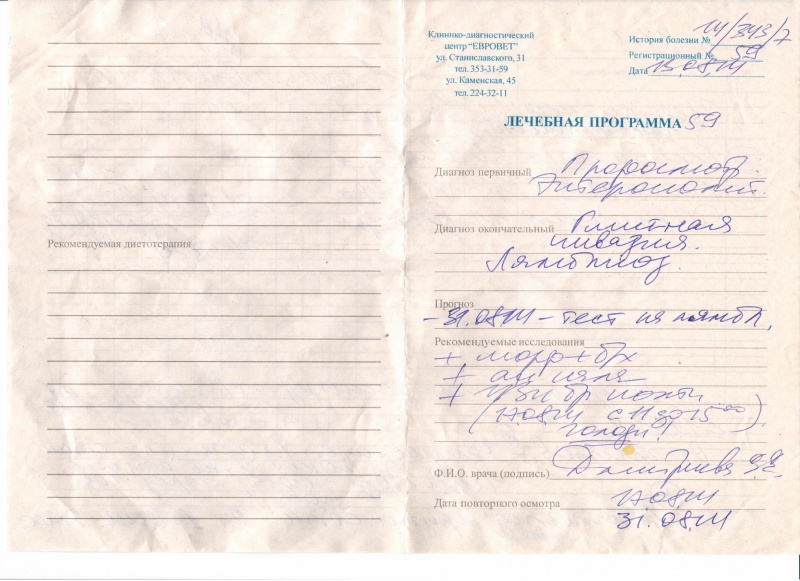 Рекомендуемая диетотерапия
Клинико-диагностический
центр "ЕВРОВЕТ"
ул. Станиславского, 31
тел. 353-31-59
ул. Каменская, 45
тел. 224-32-11
История болезни № 14/343/7
Регистрационный № 59
Дата 13.08.14
ЛЕЧЕБНАЯ ПРОГРАММА 59
Диагноз первичный Профосмотр.
Диагноз окончательный Глистная
инвазия.
Лямблиоз.
Прогноз
- 31.08.14 - тест на лямбл.
Рекомендуемые исследования
+ морф + б/х
+ ан кала
+ УЗИ бр полости
(17.08.14 с 11 до 15 00).
голодн!
Ф.И.О. врача (подпись) Дмитриева
Дата повторного осмотра 17.08.14
31.08.14